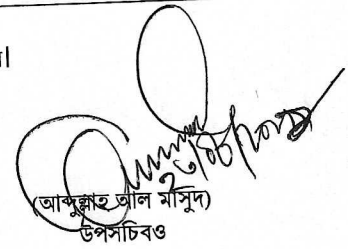 ।
(আব্দুল্লাহ আল মাসুদ)
উপসচিবও